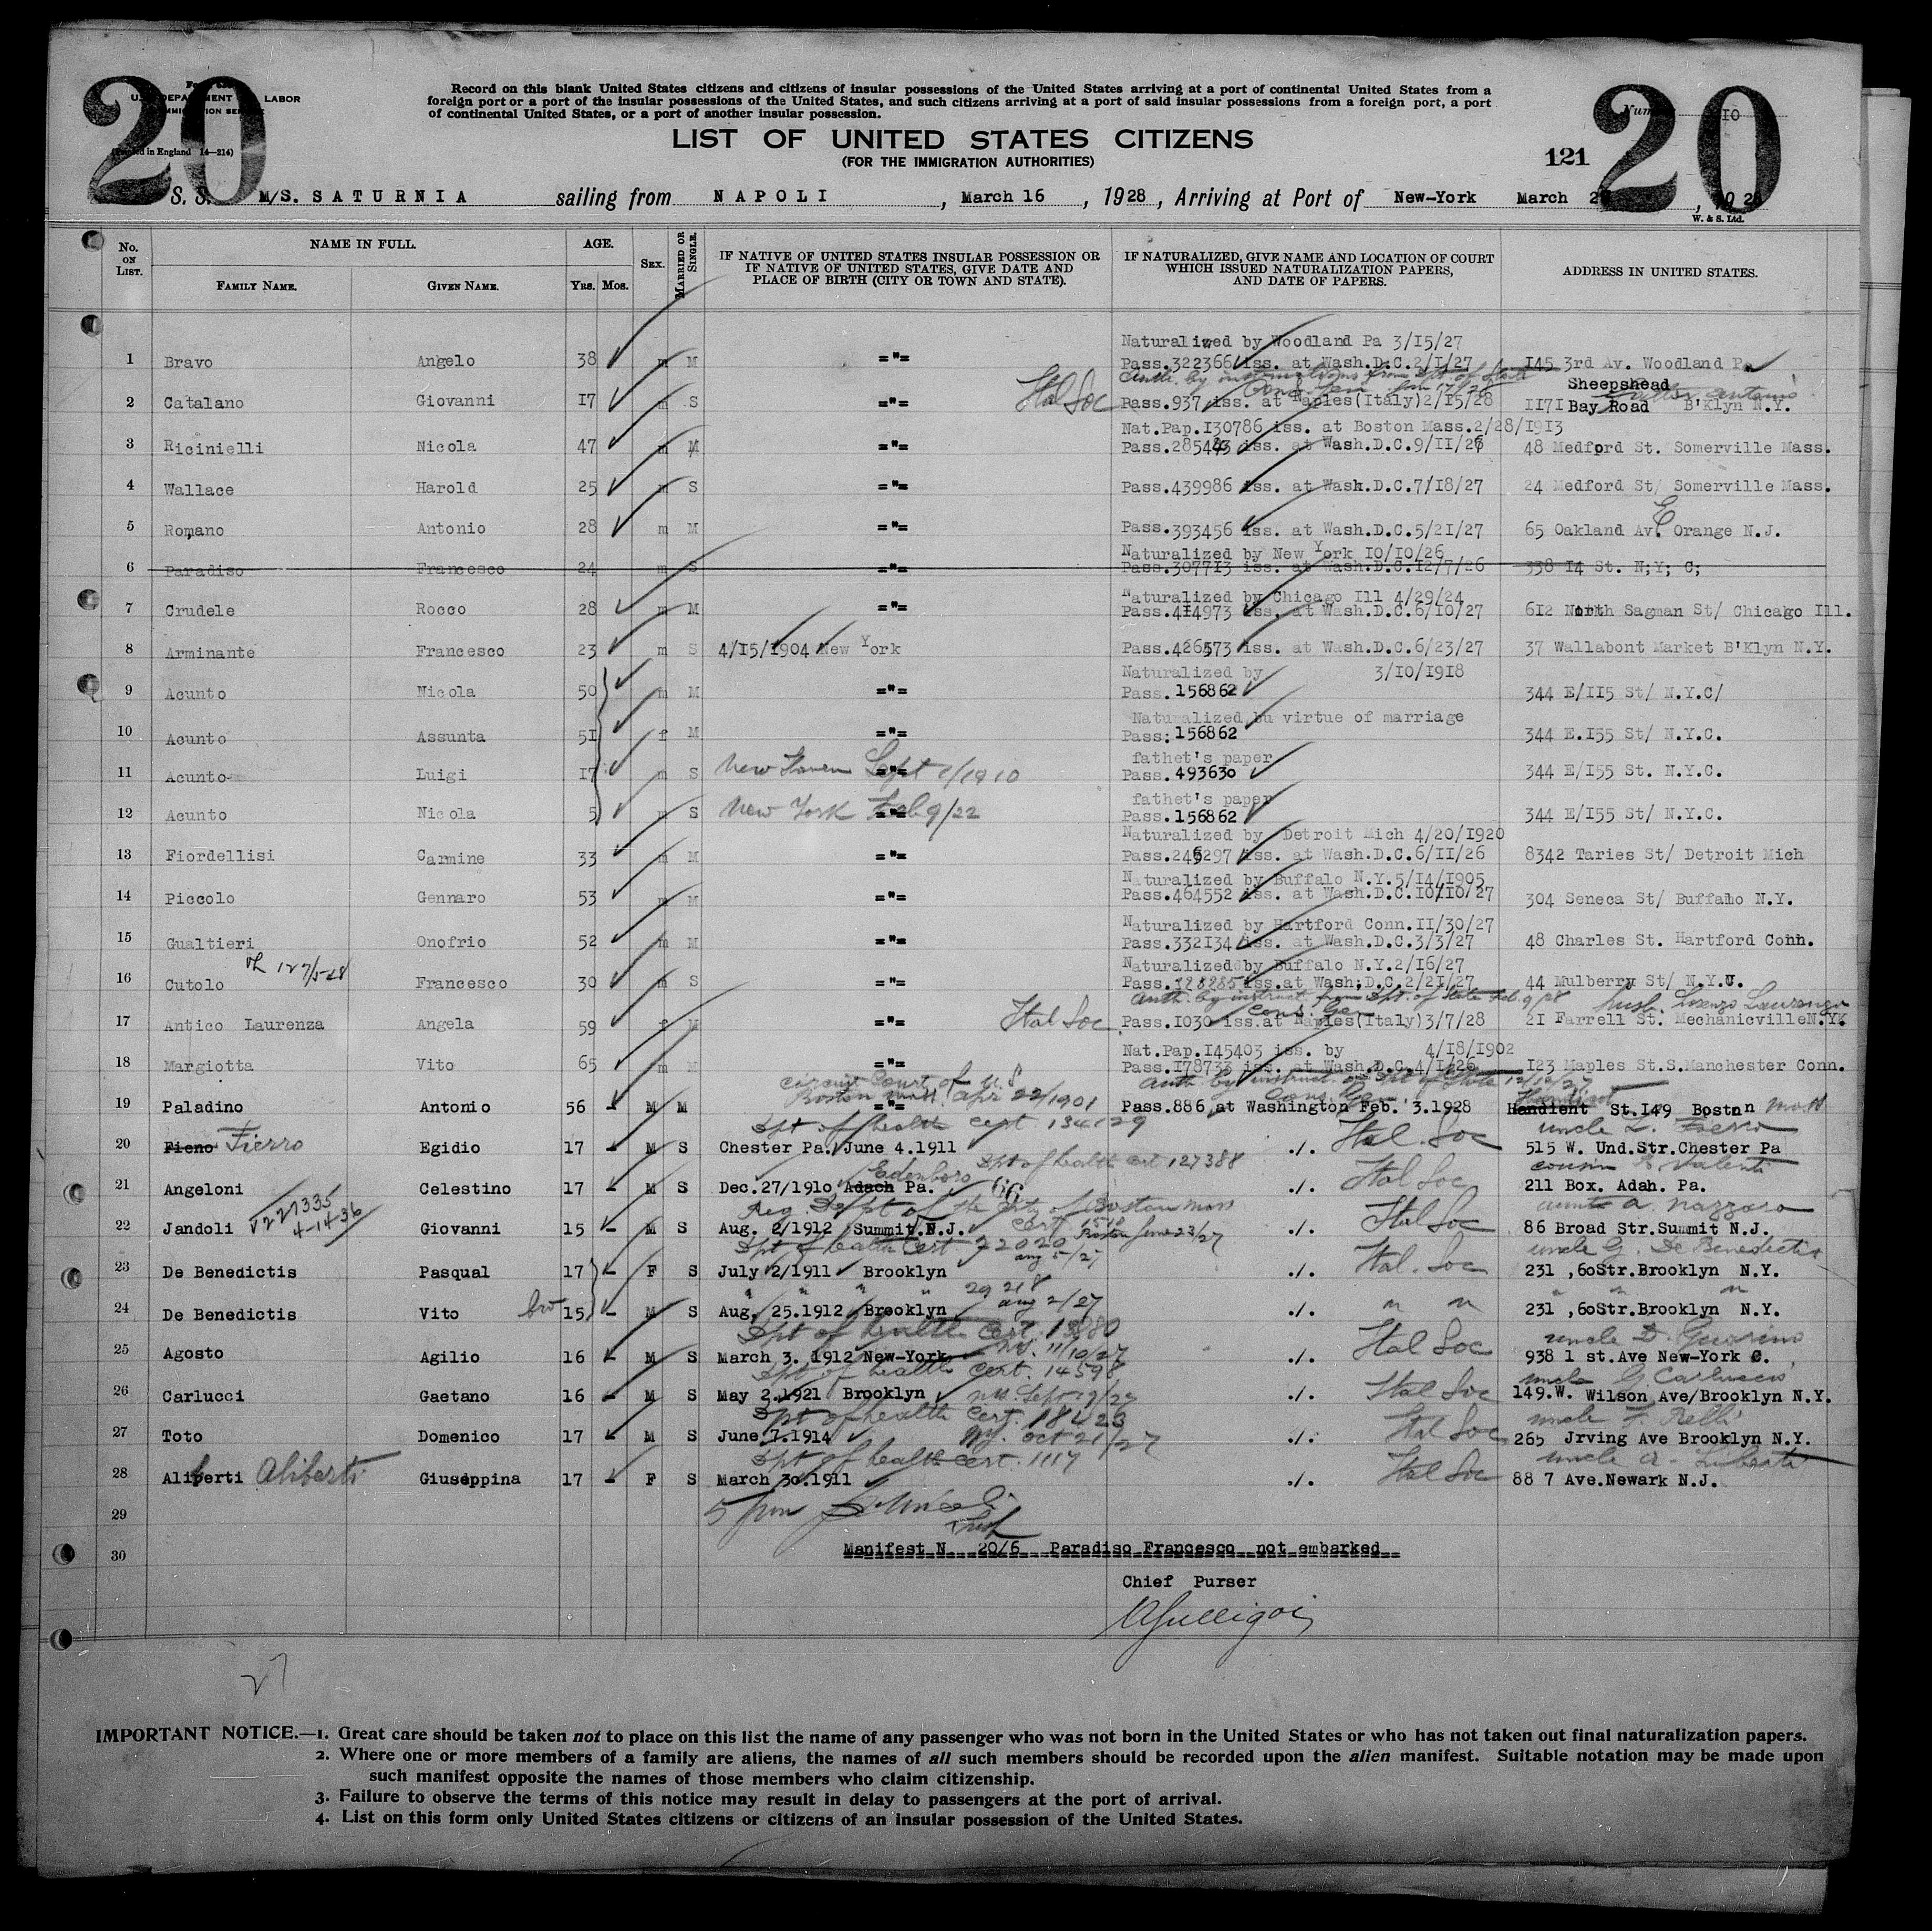 20
20
Record on this blank United States citizens and citizens of insular possessions of the United States arriving at a port of continental United States from a
foreign port or a port of the insular possessions of the United States, and such citizens arriving at a port of said insular possessions from a foreign port, a port
of continental United States, or a port of another insular possession.
LABOR
in England 14—214)
LIST OF UNITED STATES CITIZENS
(FOR THE IMMIGRATION AUTHORITIES)
121
10
S. S. M/S. SATURNIA sailing from NAPOLI, March 16, 1928, Arriving at Port of New-York March
W. & S. Ltd.
No. ON LIST. NAME IN FULL. AGE. SEX. MARRIED OR SINGLE. IF NATIVE OF UNITED STATES INSULAR POSSESSION OR IF NATIVE OF UNITED STATES, GIVE DATE AND PLACE OF BIRTH (CITY OR TOWN AND STATE). IF NATURALIZED, GIVE NAME AND LOCATION OF COURT WHICH ISSUED NATURALIZATION PAPERS, AND DATE OF PAPERS. ADDRESS IN UNITED STATES.
FAMILY NAME. GIVEN NAME. YRS. MOS.
Naturalized by Woodland Pa 3/15/27
1 Bravo Angelo 38 m M ="= Pass.322366 iss. at Wash.D.C.2/1/27 145 3rd Av. Woodland Pa
Auth. by instructions from Dpt of State
Sheepshead
2 Catalano Giovanni 17 m S ="= Ital Soc Pass.937 iss. at Naples(Italy)2/15/28 1171 Bay Road B'Klyn N.Y.
Nat.Pap.130786 iss. at Boston Mass.2/28/1913
3 Ricinielli Nicola 47 m M ="= iss. at Wash.D.C.9/11/26 48 Medford St. Somerville Mass.
4 Wallace Harold 25 m S ="= Pass.439986 iss. at Wash.D.C.7/18/27 24 Medford St/ Somerville Mass.
5 Romano Antonio 28 m M ="= Pass.393456 iss. at Wash.D.C.5/21/27 65 Oakland Av. E Orange N.J.
Naturalized by New York 10/10/26
6 Paradiso Francesco 24 m S ="= Pass.307713 iss. at Wash.D.C.12/7/26 338 14 St. N;Y; C;
Naturalized by Chicago Ill 4/29/24
7 Crudele Rocco 28 m M ="= Pass.414973 iss. at Wash.D.C.6/10/27 612 North Sagman St/ Chicago Ill.
8 Arminante Francesco 23 m S 4/15/1904 New York iss. at Wash.D.C.6/23/27 37 Wallabont Market B'Klyn N.Y.
Naturalized by 3/10/1918
9 Acunto Nicola 50 m M ="= Pass.156862 344 E/115 St/ N.Y.C/
Naturalized bu virtue of marriage
10 Acunto Assunta 51 f M ="= Pass:156862 344 E.155 St/ N.Y.C.
fathet's paper
11 Acunto Luigi 17 m S New Haven ="= Sept 1/1910 Pass.493630 344 E/155 St. N.Y.C.
fathet's paper
12 Acunto Nicola 5 m S New York ="= Feb 9/22 Pass.156862 344 E/155 St/ N.Y.C.
Naturalized by Detroit Mich 4/20/1920
13 Fiordellisi Carmine 33 m M ="= iss. at Wash.D.C.6/11/26 8342 Taries St/ Detroit Mich
Naturalized by Buffalo N.Y.5/14/1905
14 Piccolo Gennaro 53 m M ="= Pass.464552 iss. at Wash.D.C.10/10/27 304 Seneca St/ Buffalo N.Y.
Naturalized by Hartford Conn.11/30/27
15 Gualtieri Onofrio 52 m M ="= Pass.332134 iss. at Wash.D.C.3/3/27 48 Charles St. Hartford Conn.
Naturalized by Buffalo N.Y.2/16/27
16 Cutolo Francesco 30 m S ="= Pass.328285 iss.at Wash.D.C.2/21/27 44 Mulberry St/ N.Y.
Auth. by instruct. from Dpt. of State Feb. 9/28 husb. Lorenzo Laurenza
Cons. Gen
17 Antico Laurenza Angela 59 f M ="= Ital Soc Pass.1030 iss.at Naples(Italy)3/7/28 21 Farrell St. Mechanicville N.Y.
Nat.Pap.145403 iss. by 4/18/1902
18 Margiotta Vito 65 m M ="= Pass.178733 iss. at Wash.D.C.4/1/26 123 Maples St.S.Manchester Conn.
circuit Court of U.S Auth. by instruct. of Dpt of State 12/12/27
Boston Mass. Apr 22/1901 Cons. Gen.
19 Paladino Antonio 56 - M M ="= Pass.886 at Washington Feb. 3.1928 Handient St.149 Boston Mass
Dpt of health cert 134129
20 Fieno Fierro Egidio 17 - M S Chester Pa. June 4.1911 ./. Ital. Soc 515 W. Und.Str.Chester Pa
Edenboro Dpt of health cert 127388 cousin Valenti
21 Angeloni Celestino 17 - M S Dec.27/1910 Adach Pa. 66 ./. Ital Soc 211 Box. Adah. Pa.
V227335
4-14-36
Reg. Dept of the City of Boston Mass aunt a. Nazzaro
22 Jandoli Giovanni 15 - M S Aug. 2/1912 Summit.N.J. ./. Ital Soc 86 Broad Str.Summit N.J.
Dpt of health Cert 22020 uncle G. De Benedictis
23 De Benedictis Pasqual 17 - F S July 2/1911 Brooklyn ./. Ital. Soc 231 ,60Str.Brooklyn N.Y.
29218 aug 2/27
24 De Benedictis Vito bro 15 - M S Aug. 25.1912 Brooklyn ./. " " 231 ,60Str.Brooklyn N.Y.
Dpt of health Cert. uncle D. Guarino
25 Agosto Agilio 16 - M S March 3. 1912 New-York ./. Ital Soc 938 1 st.Ave New-York C.
Dpt of health Cert. 14598 uncle G Carluccio
26 Carlucci Gaetano 16 - M S May 2.1921 Brooklyn ./. Ital Soc 149.W. Wilson Ave/Brooklyn N.Y.
Dpt of health Cert. uncle F. Relli
27 Toto Domenico 17 - M S June 7.1914 Oct 21/27 ./. Ital Soc 265 Jrving Ave Brooklyn N.Y.
Dpt of health cert. 1117
28 Aliberti Aliberti Giuseppina 17 - F S March 30.1911 ./. Ital Soc 88 7 Ave.Newark N.J.
29
30
Manifest N 20/6 Paradiso Francesco not embarked
Chief Purser
27
IMPORTANT NOTICE.—1. Great care should be taken not to place on this list the name of any passenger who was not born in the United States or who has not taken out final naturalization papers.
2. Where one or more members of a family are aliens, the names of all such members should be recorded upon the alien manifest. Suitable notation may be made upon
such manifest opposite the names of those members who claim citizenship.
3. Failure to observe the terms of this notice may result in delay to passengers at the port of arrival.
4. List on this form only United States citizens or citizens of an insular possession of the United States.